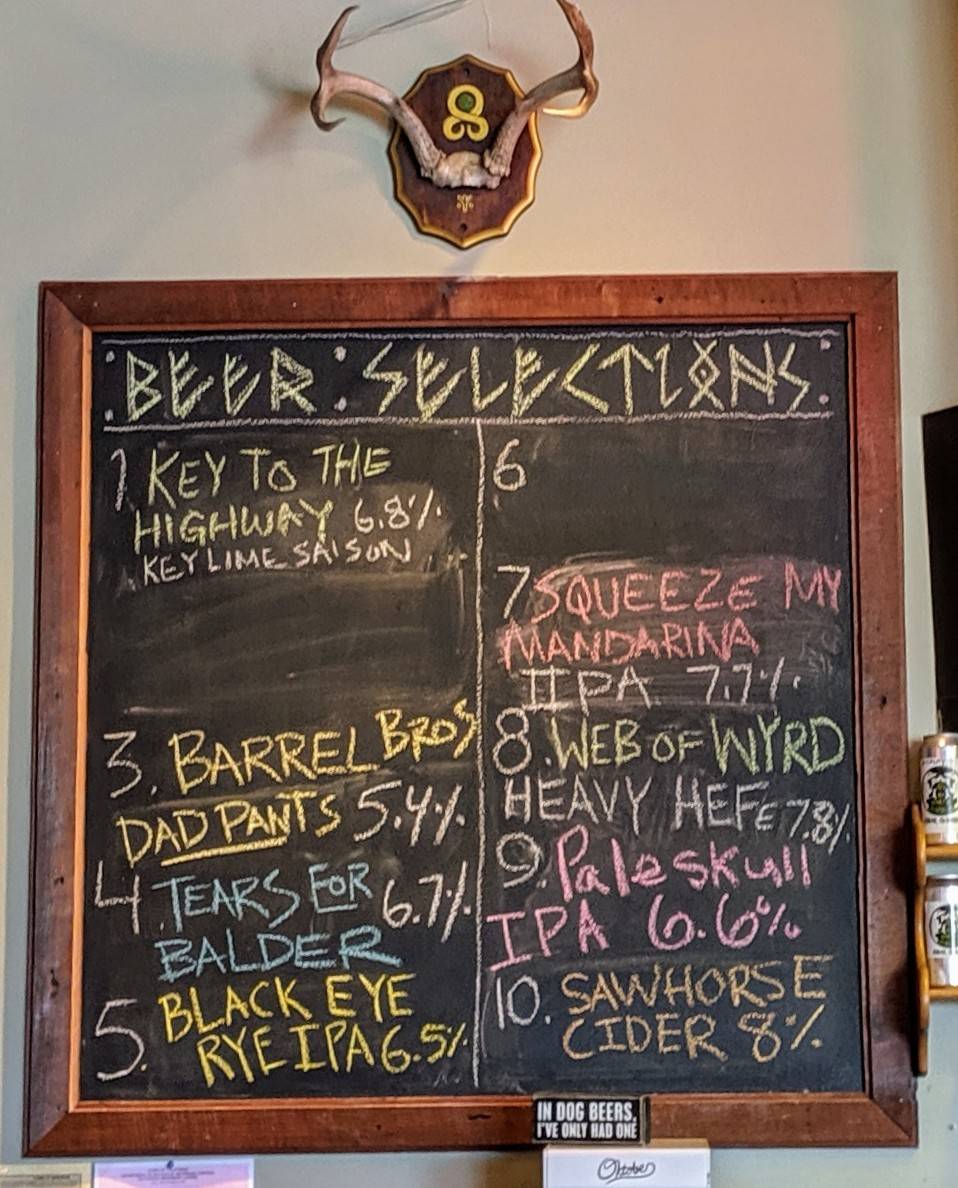 :BEER:SELECTIONS:
1. KEY TO THE
HIGHWAY 6.8%
KEY LIME SAISON
3. BARREL BROS
DAD PANTS 5.4%
4. TEARS FOR 6.7%
BALDER
5. BLACK EYE
RYE IPA 6.5%
6
7 SQUEEZE MY
MANDARINA
IIPA 7.7%
8. WEB OF WYRD
HEAVY HEFE 7.8%
9. Pale skull
IPA 6.6%
10. SAWHORSE
CIDER 8%
IN DOG BEERS,
I'VE ONLY HAD ONE